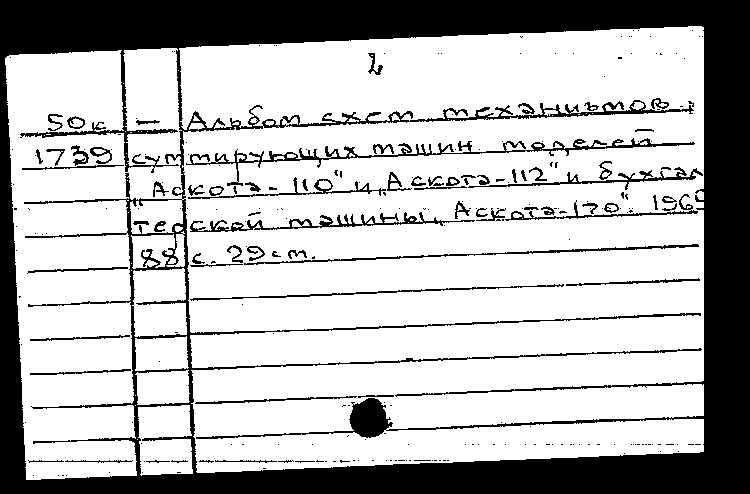 2
50к — Альбом схем механизмов
1739 суммирующих машин моделей
„Аскота-110" и „Аскота-112" и бухгал
терской машины „Аскота-170". 196
88 с. 29 см.